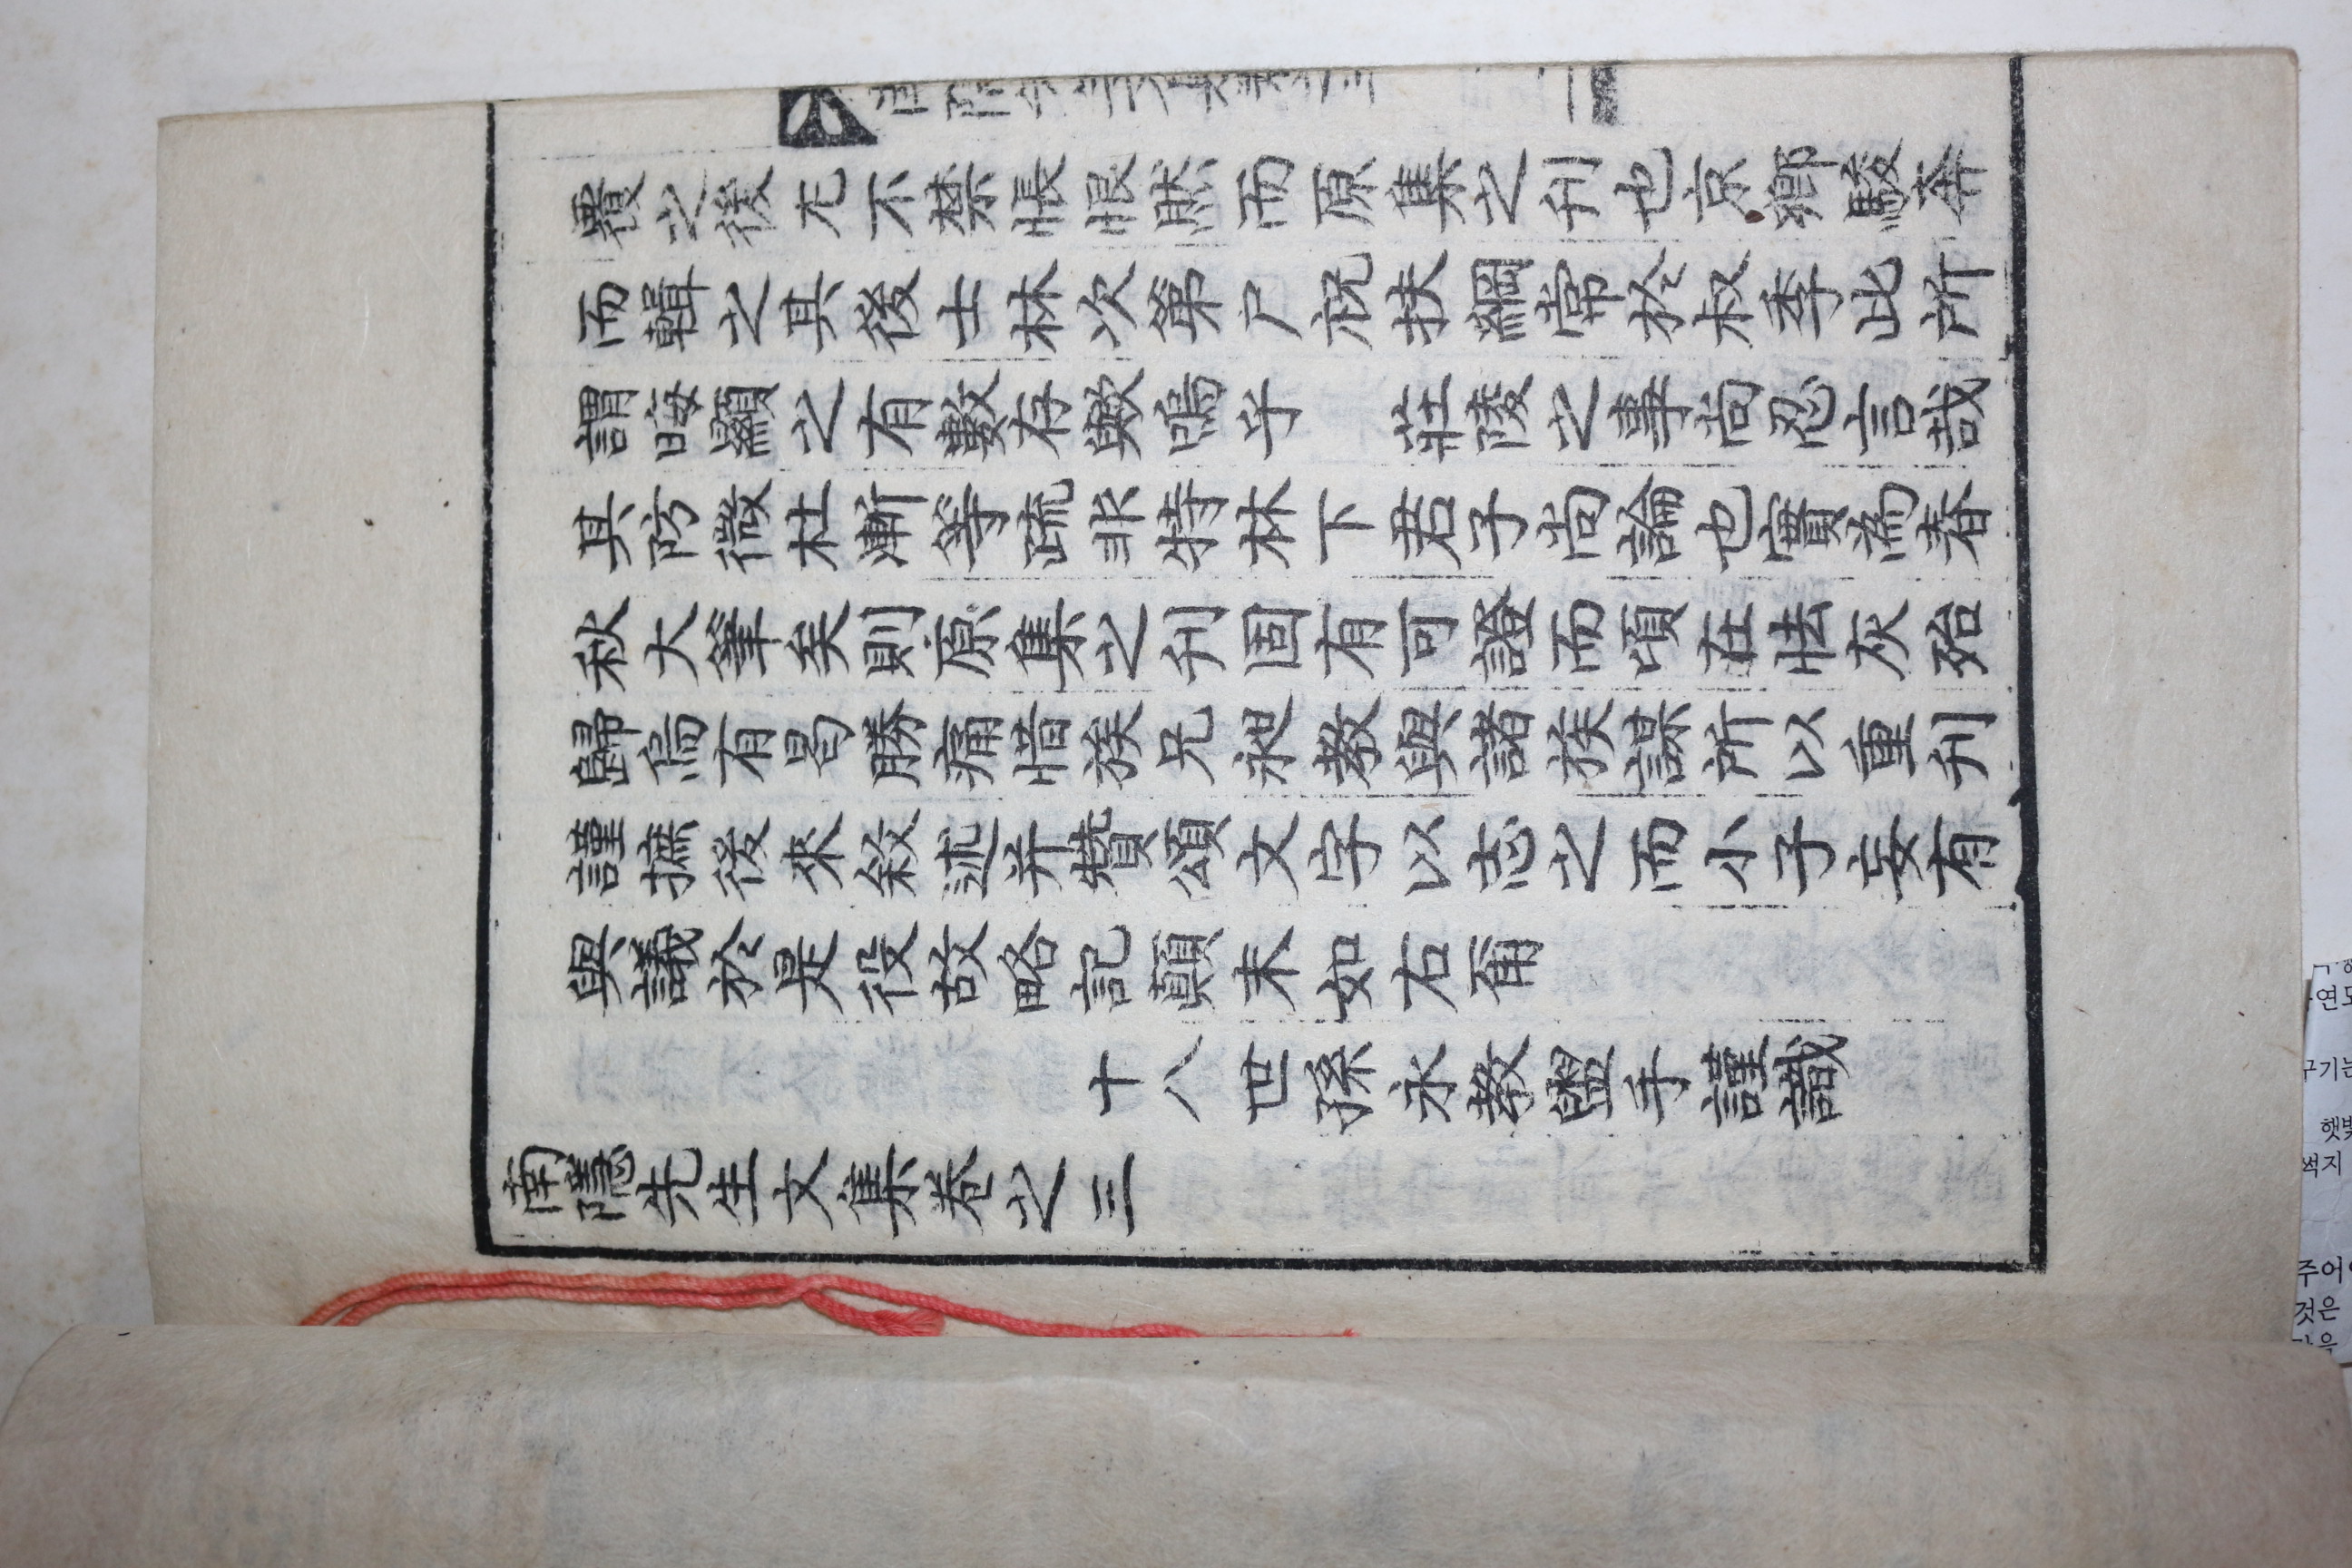 南隱先生文集卷之三
覆之後尤不禁悵恨然而原集之刊也京鄉駿奔
而輯之其後士林次第户祝扶綱常於叔季此所
謂晦顯之有數存歟嗚乎 莊陵之事尚忍言哉
其防微杜漸等疏非特林下君子尚論也實為春
秋大筆矣則原集之刊固有可證而頃在怯灰殆
歸烏有曷勝痛惜族兄昶教與諸族謀所以重刊
謹摭後來敘述并贊頌文字以志之而小子妄有
與議於是役故略記顛末如右甭
十八世孫永教盥手謹識
南隱先生文集卷之三